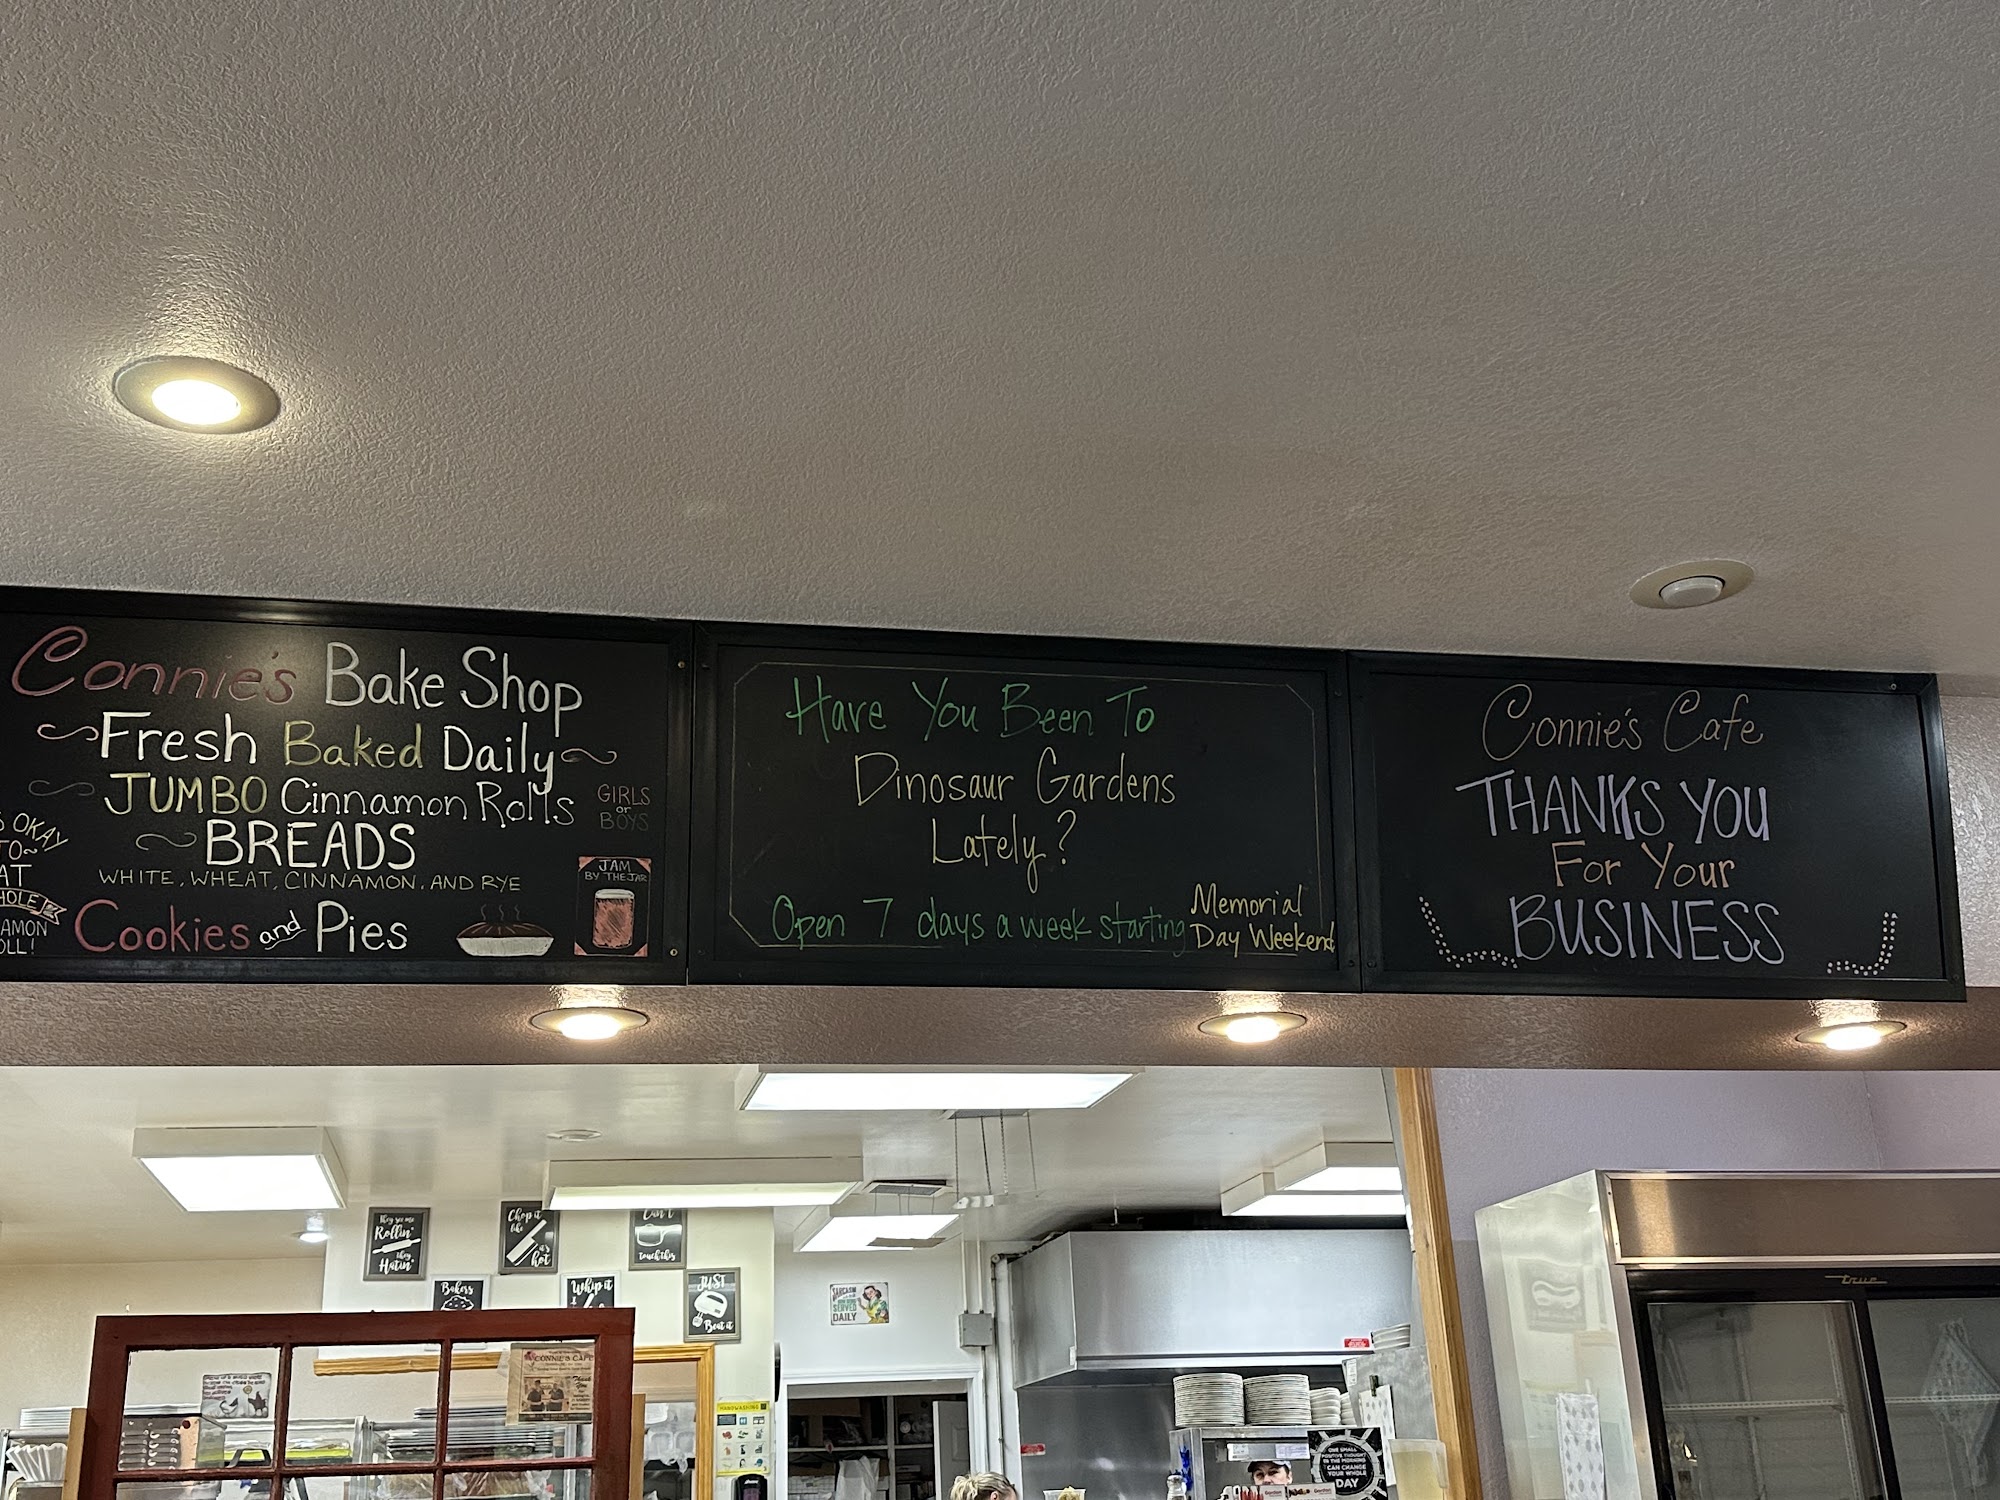 Connie's Bake Shop
Fresh Baked Daily
JUMBO Cinnamon Rolls
BREADS
WHITE, WHEAT, CINNAMON, AND RYE
Cookies and Pies
GIRLS
or
BOYS
JAM
BY THE JAR
OKAY
TO
AT
HOLE
AMON
OLL!
Have You Been To
Dinosaur Gardens
Lately?
Open 7 days a week starting
Memorial
Day Weekend
Connie's Cafe
THANKS YOU
For Your
BUSINESS
They see me
Rollin'
they
Hatin'
Chop it
like
it's
hot
Can't
touch this
Bakers
Whip it
JUST
Beat it
SARCASM
SERVED
DAILY
CONNIE'S CAFE
Thank
You
HANDWASHING
true
ONE SMALL
POSITIVE THOUGHT
IN THE MORNING
CAN CHANGE
YOUR WHOLE
DAY
Gordon
Gordon